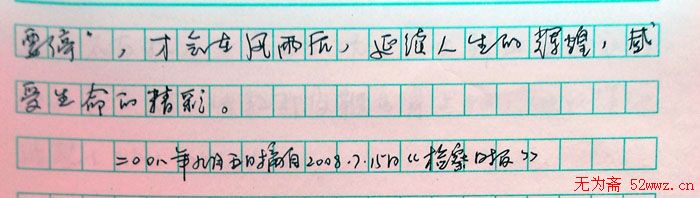 要停”，才会在风雨后，延续人生的辉煌，感
受生命的精彩。
二〇〇八年九月五日摘自2008.7.15日《检察日报》
无为斋 52wwz.cn